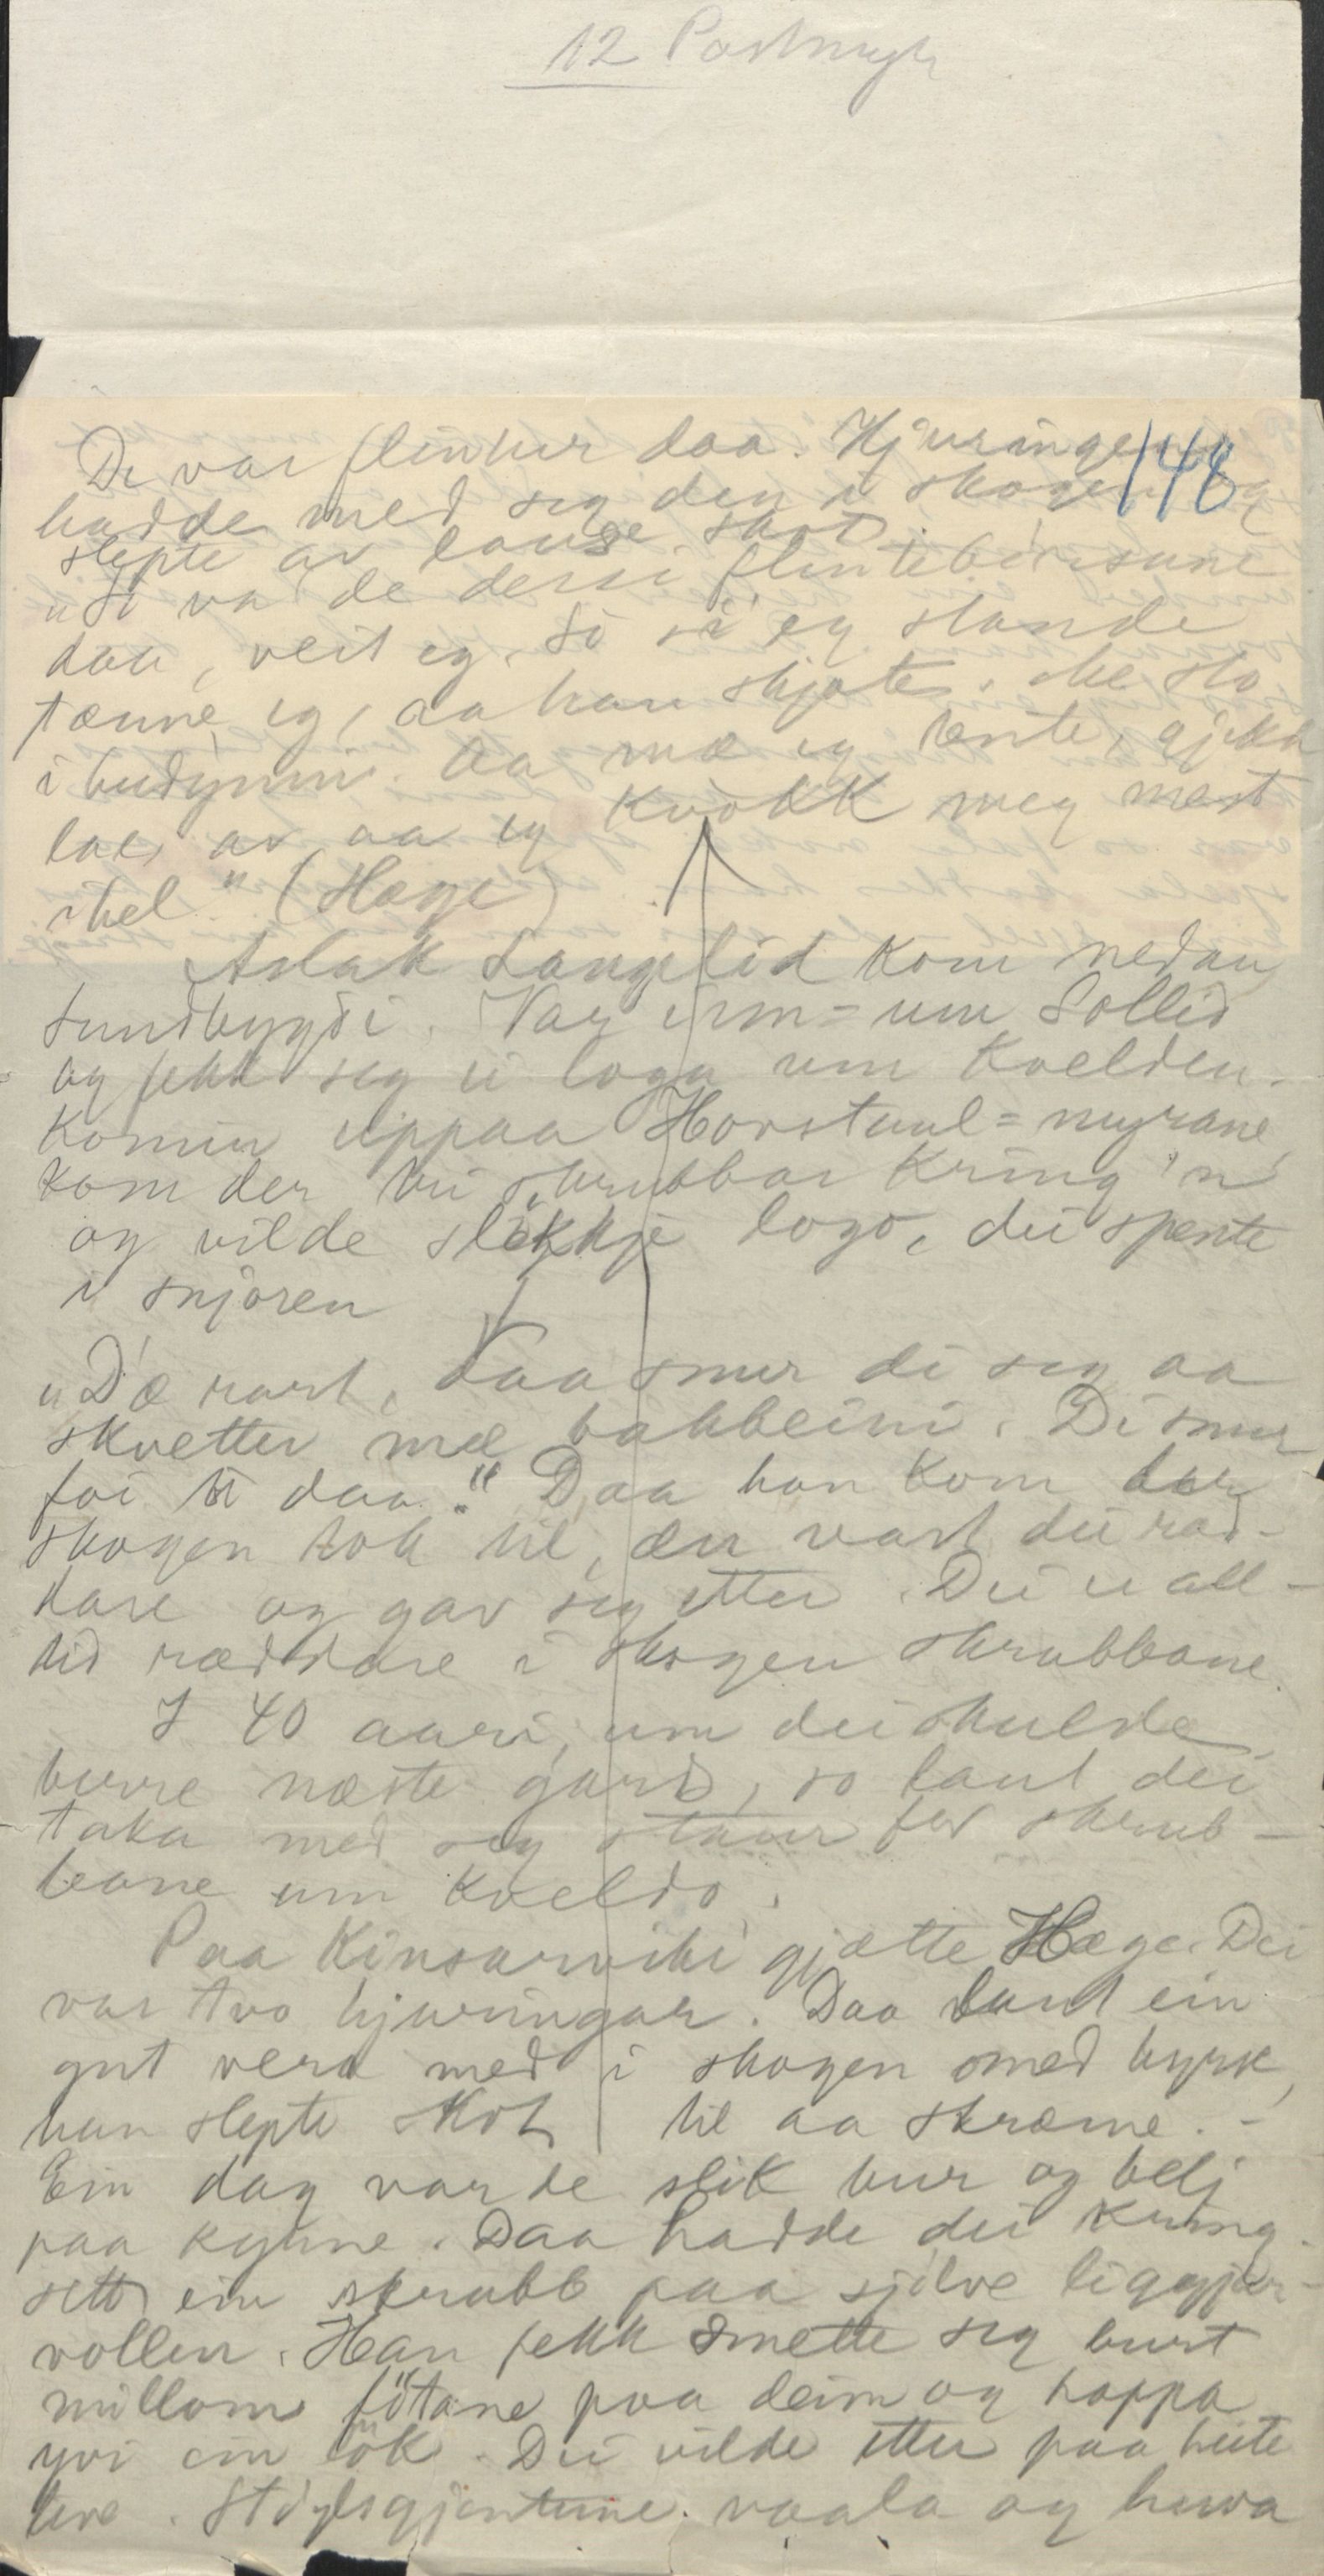 12
148
De var flinkur daa. Hjuringen
hadde med seg den i skogen og
slepte av lause skot.
"So va de dessi flintebørsune
daa, veit eg. So så eg stande
tænne, eg, aa han skjøte. Me sto
i budynni. Aa mæ eg lente, gjekk
lae, av aa eg kvökk meg mest
ihel" (Hæge)
Aslak Langelid kom nedan
Sundbygdi. Var inn=um Sollid
og fekk seg ei loga um kvelden.
Komin uppaa Horstaul=myrane
kom der tri skrubbar kring 'n
og vilde sløkkje logo, dei spente
i snjoren
"D'æ rart, daa snur di seg aa
skvetter mæ bakbeini. Di snur
foi ti daa." Daa han kom der
skogen tok til, der vart dei ræd-
dare og gav seg etter. Dei er all-
tid ræddare i skogen skrubbane.
I 40 aari, um dei skulde
burre næste gard, so laut dei
taka med seg staur for skrub-
bane um kveldo.
Paa Kinsarviki gjætte Hæge. Dei
var two hjuringar. Daa laut ein
gut vera med i skogen med byrse,
han slepte skot til aa skræme. -
Ein dag var de slik bur og belj
paa kyrine. Daa hadde dei kring-
sett ein skrubb paa sjølve liggjar-
vollen. Han fekk smette seg burt
millom föttane paa deim og hoppa
yvi ein løk. Dei vilde etter paa heite
live. Stöylsgjentune vaala og huva